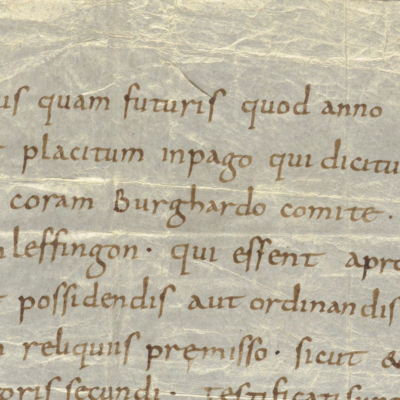 us quam futuris quod anno
placitum inpago qui dicitu
coram Burghardo comite ·
leffingon · qui essent apro
possidendis aut ordinandis
reliquiis premisso · sicut &
oris secundi · testificati sunt